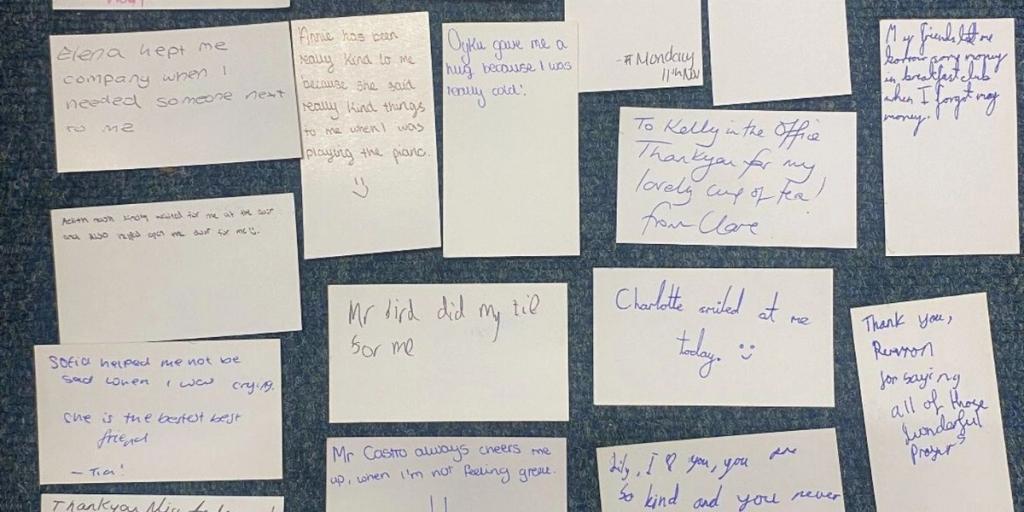 Elena kept me
company when I
needed someone next
to me
Annie has been
really kind to me
because she said
really kind things
to me when I was
playing the piano.
Oyku gave me a
hug because I was
really cold.
-#Monday
11th Nov
To Kelly in the Office
Thankyou for my
lovely cup of Tea!
from Clare
My friends let me
borrow some money
in breakfast club
when I forgot my
money.
kindly waited for me at the door
and also open the door for me
Mr bird did my tie
for me
Charlotte smiled at me
today.
Thank you,
for saying
all of those
wonderful
Prayers
Sofia helped me not be
sad when I was crying.
She is the bestest best
friend
Mr Castro always cheers me
up, when I'm not feeling great.
Lily, I you, you are
so kind and you never
Thankyou